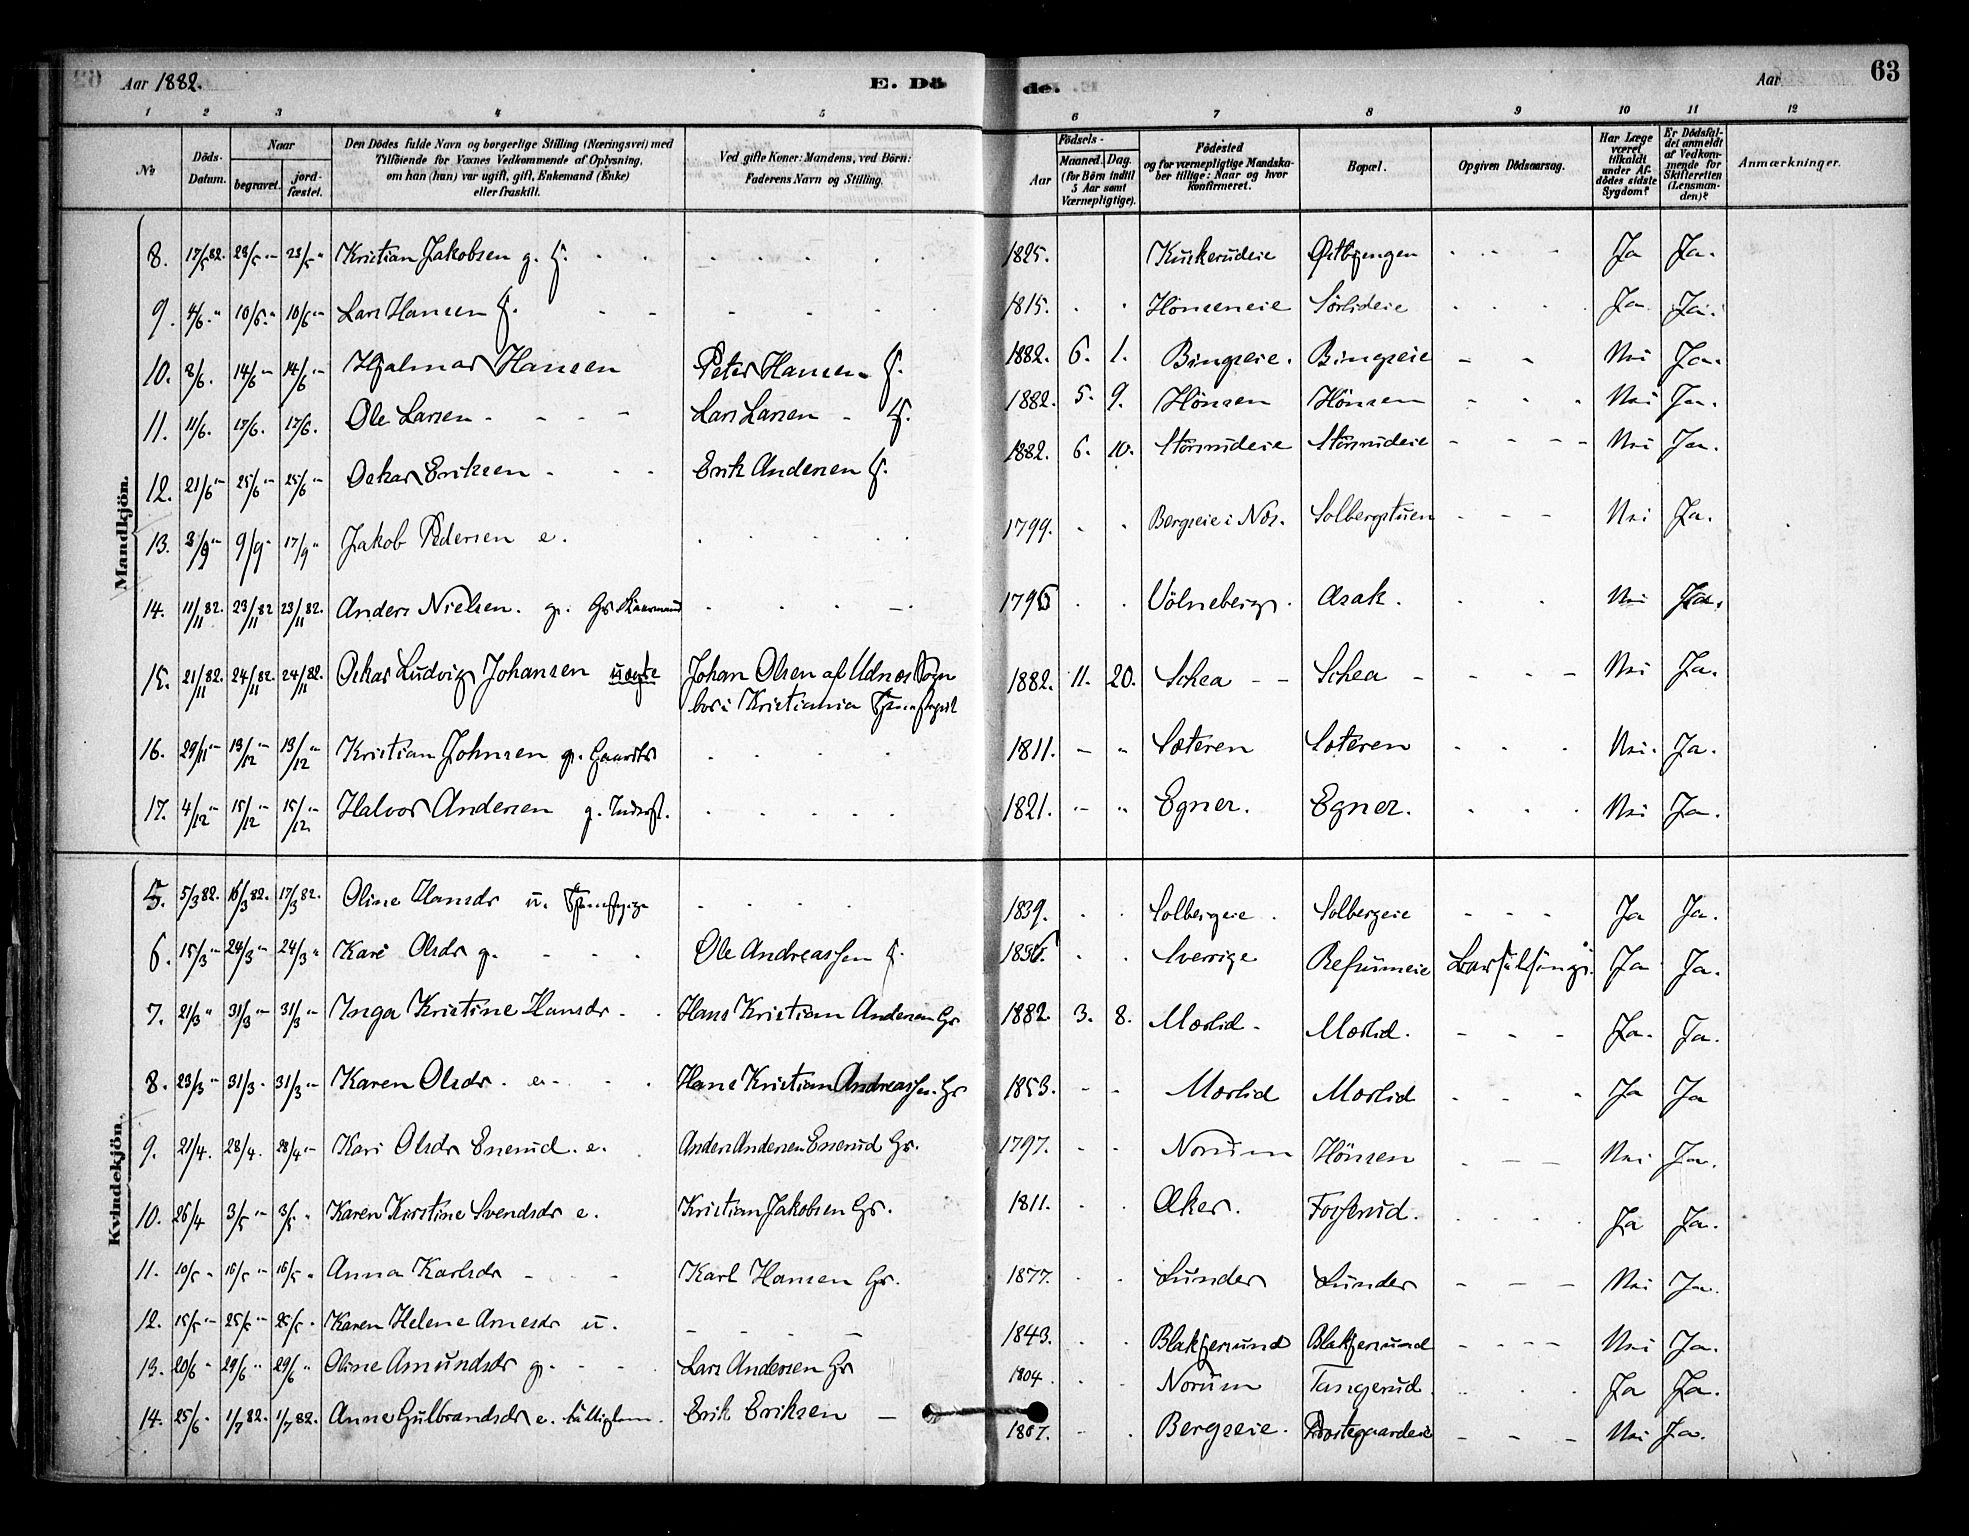 Aar 1882. E. Dö de. Aar 63
1 2 3 4 5 6 7 8 9 10 11 12
No
Döds-Datum.
Naar begravet. jordfæstet.
Den Dödes fulde Navn og borgerlige Stilling (Næringsvei) med Tilföiende for Voxnes Vedkommende af Oplysning, om han (hun) var ugift, gift, Enkemand (Enke) eller fraskilt.
Ved gifte Koner: Mandens, ved Börn: Faderens Navn og Stilling.
Födsels- Aar Maaned. Dag. (for Börn indtil 5 Aar samt Værnepligtige).
Födested og for værnepligtige Mandskaber tillige: Naar og hvor Konfirmeret.
Bopæl.
Opgiven Dödsaarsag.
Har Læge været tilkaldt under Afdödes sidste Sygdom?
Er Dödsfaldet anmeldt af Vedkommende for Skifteretten (Lensmanden)?
Anmærkninger.
Mandkjön.
8. 17/5 82. 23/5 " 23/5 " Kristian Jakobsen g. 1825. Kuskerudeie Ja Ja.
9. 4/6. " 10/6. " 10/6 " Lars Hansen 1815. Hönseneie Sörlideie Ja Ja.
10. 8/6. 14/6 " 14/6 " Hjalmar Hansen Peter Hansen 1882. 6. 1. Bingseie. Bingseie Nei Ja.
11. 11/6. 17/6. 17/6. Ole Larsen Lars Larsen 1882. 5. 9. Hönsen Hönsen Nei Ja.
12. 21/6 " 25/6 " 25/6 " Oskar Eriksen Erik Andersen 1882. 6. 10. Störsrudeie Störsrudeie Nei Ja.
13. 3/9 " 9/9 " 17/9 " Jakob Pedersen e. 1799. Bergseie i Næs. Solbergstuen Nei Ja.
14. 11/11 82. 23/11 82 23/11 82. Anders Nielsen. g. Gr. 1795 Völneberg. Asak. Nei Ja.
15. 21/11 82. 24/11 82 24/11 82. Oskar Ludvig Johansen uægte Johan Olsen af Udnæs Sogn 1882. 11. 20. Schea Schea Nei Ja.
bor i Kristiania
16. 29/11 " 13/12 " 13/12 " Kristian Johnsen g. 1811. Sæteren Sæteren Nei. Ja.
17. 4/12 " 15/12 " 15/12 " Halvor Andersen g. Inderst. 1821. Egner. Egner. Nei Ja.
Kvindekjön.
5. 5/3 82. 16/3 82. 17/3 82. Oline Hansdr u. 1839. Solbergeie Solbergeie Ja Ja.
6. 15/3 " 24/3 " 24/3 " Kari Olsdr g. Ole Andreassen Sverrige Refsumeie Ja Ja.
7. 21/3 " 31/3 " 31/3 " Inga Kristine Hansdr Hans Kristian Andersen Gr 1882 3. 8. Mørlid Mørlid. Ja. Ja.
8. 23/3 " 31/3. 31/3 " Karen Olsdr. Hans Kristian Andreassen. Gr 1853. Mørlid Mørlid Ja Ja
9. 21/4. 28/4. 28/4 " Kari Olsdr Enerud. e. Anders Andersen Enerud Gr. 1797. Norum Hönsen Nei Ja.
10. 26/4 3/5 " 3/5 " Karen Kirstine Svendsdr e. Kristian Jakobsen Gr. 1811. Aker. Fosserud. Ja Ja.
11. 10/5 " 16/5 " 16/5 " Anna Karlsdr Karl Hansen Gr. 1877. Lunder Lunder Nei Ja.
12. 15/5 " 25/5 " 25/5 " Karen Helene Arnesdr u. 1843. Blakjerund Blakjerund Nei Ja.
13. 20/6 " 29/6 " 29/6 " Oline Amundsdr g. Lars Andersen Gr 1804 Norum Tangerud. Ja Ja.
14. 25/6 " 1/7 82. 1/7 82. Anne Gulbrandsdr e. Fattiglem. Erik Eriksen 1807. Bergseie. Prostegaardeie Nei Ja.